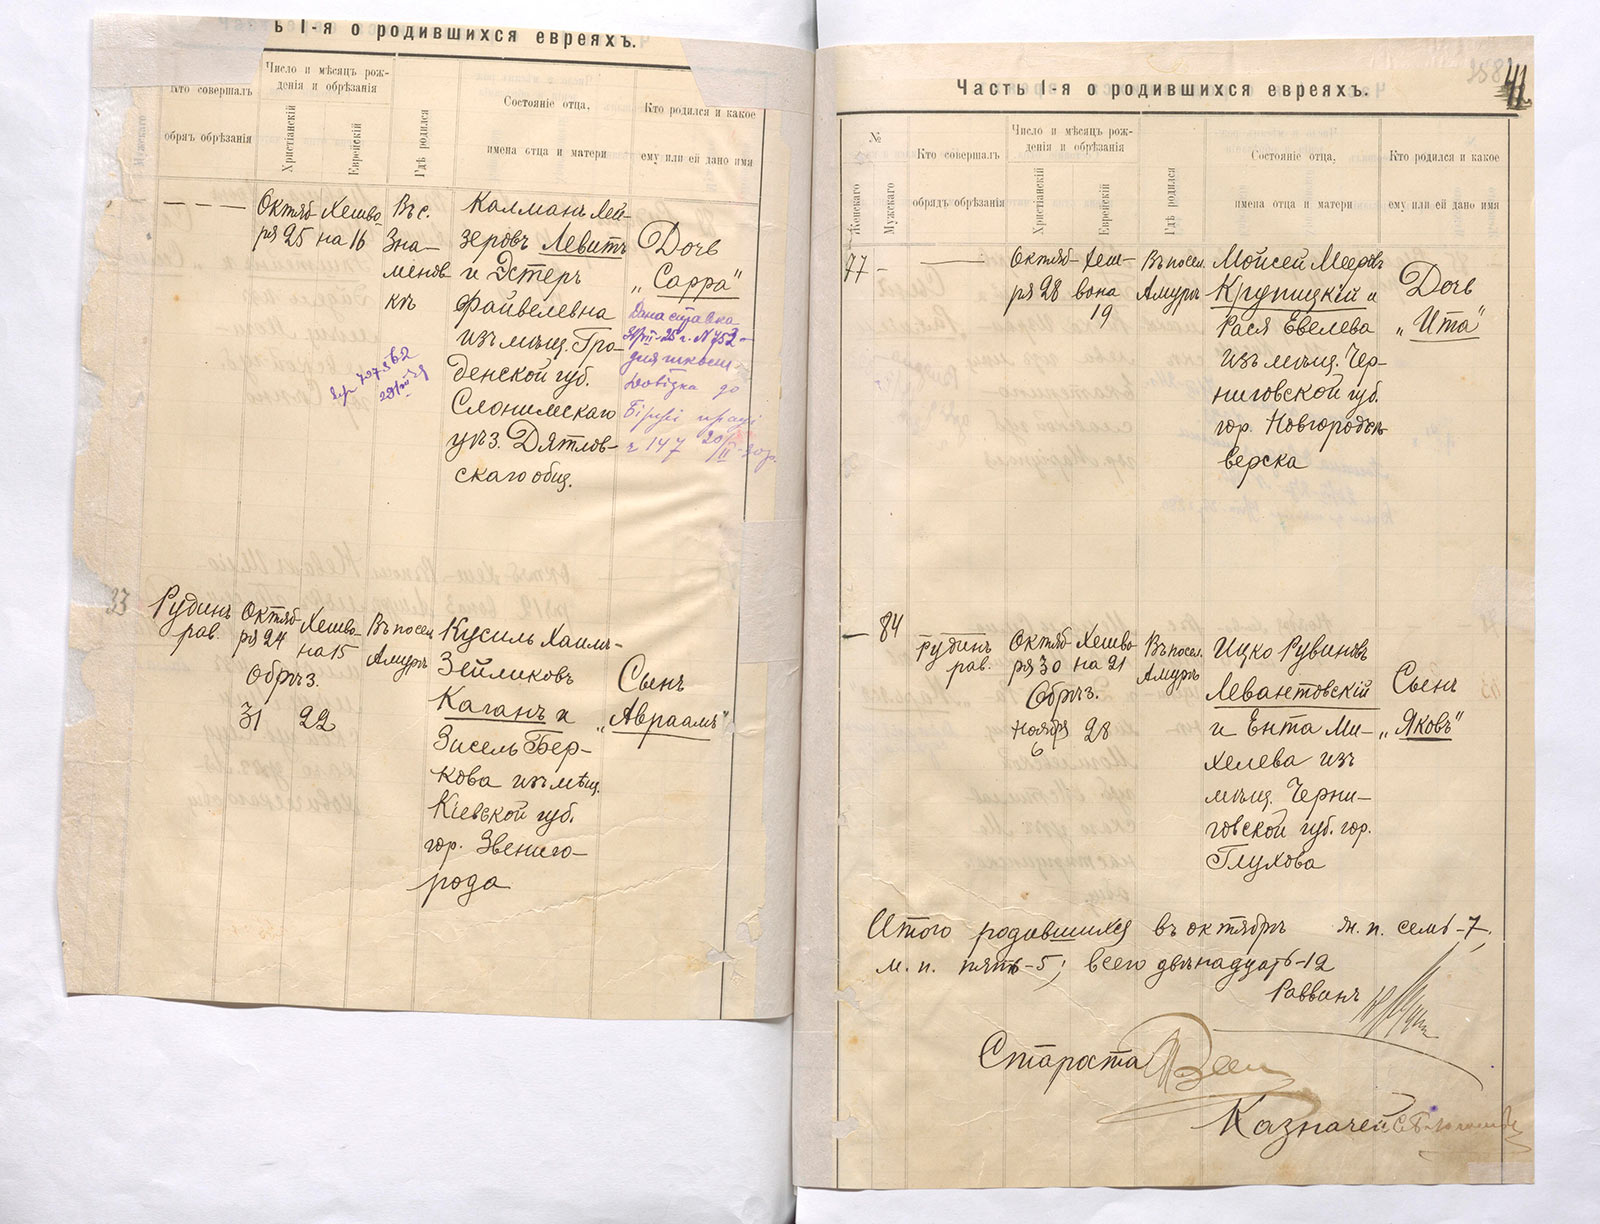 ь I-я о родившихся евреяхъ.
Кто совершалъ
обрядъ обрѣзанія
Число и мѣсяцъ рож-
денія и обрѣзанія
Христіанскій
Еврейскій
Гдѣ родился
Состояніе отца,
имена отца и матери
Кто родился и какое
ему или ей дано имя
Мужскаго
— — —
Октяб-
ря 25
Хешво
на 16
Въ с.
Зна-
менов
кѣ
Калманъ Лей-
зеровъ Левитъ
и Эстеръ
Файвелевна
изъ мѣщ. Гро-
денской губ.
Слонимскаго
уѣз. Дятлов-
скаго общ.
Дочь
„Сарра"
Дана справка
Довідка до
Біржі праці
ч 147 20/II-30р.
33
Рудинъ
рав.
Октяб-
ря 24
Обрѣз.
31
Хешво-
на 15
22
Въ посел
Амуръ
Кусиль Хаимъ-
Зейликовъ
Каганъ и
Зисель Бер-
кова изъ мѣщ.
Кіевской губ.
гор. Звениго-
рода
Сынъ
„Авраамъ"
41
Часть I-я о родившихся евреяхъ.
№
Женскаго
Мужскаго
Кто совершалъ
обрядъ обрѣзанія
Число и мѣсяцъ рож-
денія и обрѣзанія
Христіанскій
Еврейскій
Гдѣ родился
Состояніе отца,
имена отца и матери
Кто родился и какое
ему или ей дано имя
77 -
—
Октяб-
ря 28
Хеш-
вона
19
Въ посел.
Амуръ
Мойсей Мееровъ
Крупицкій и
Рася Евелева
изъ мѣщ. Чер-
ниговской губ.
гор. Новгородъ-
верска
Дочь
„Ита"
— 84
Рудинъ
рав.
Октяб-
ря 30
Обрѣз.
Ноября
6
Хешво
на 21
28
Въ посел.
Амуръ
Ицко Рувиновъ
Левантовскій
и Ента Ми-
хелева изъ
мѣщ. Черни-
говской губ. гор.
Глухова
Сынъ
„Яковъ"
Итого родившихся въ октябрѣ ж. п. семь-7,
м. п. пять-5; всего двѣнадцать-12
Раввинъ
Староста
Казначей